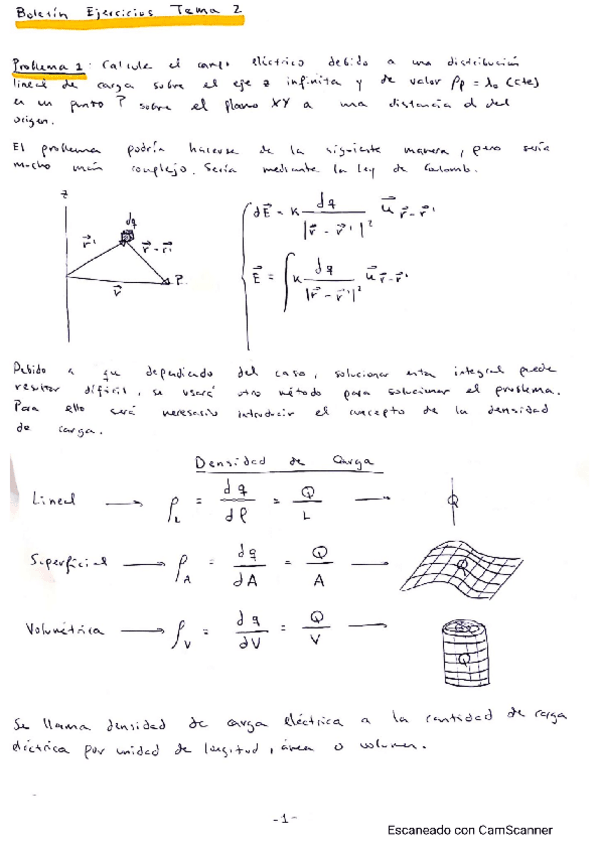 Boletín Ejercicios Tema 2
Problema 1: Calcule el campo eléctrico debido a una distribución
lineal de carga sobre el eje z infinita y de valor ρρ = λ₀ (cte)
en un punto P sobre el plano XY a una distancia d del
origen.
El problema podría hacerse de la siguiente manera, pero sería
mucho más complejo. Sería mediante la ley de Coulomb.
z
dq
r⃗' r⃗ - r⃗'
P
r⃗
dE⃗ = K dq / |r⃗ - r⃗'|² u⃗ r⃗-r⃗'
E⃗ = ∫ K dq / |r⃗ - r⃗'|² u⃗ r⃗-r⃗'
Debido a que dependiendo del caso, solucionar esta integral puede
resultar difícil, se usará otro método para solucionar el problema.
Para ello será necesario introducir el concepto de la densidad
de carga.
Densidad de Carga
Lineal → ρL = dq / dl = Q / L → Q
Superficial → ρA = dq / dA = Q / A → Q
Volumétrica → ρV = dq / dV = Q / V → Q
Se llama densidad de carga eléctrica a la cantidad de carga
eléctrica por unidad de longitud, área o volumen.
-1-
Escaneado con CamScanner